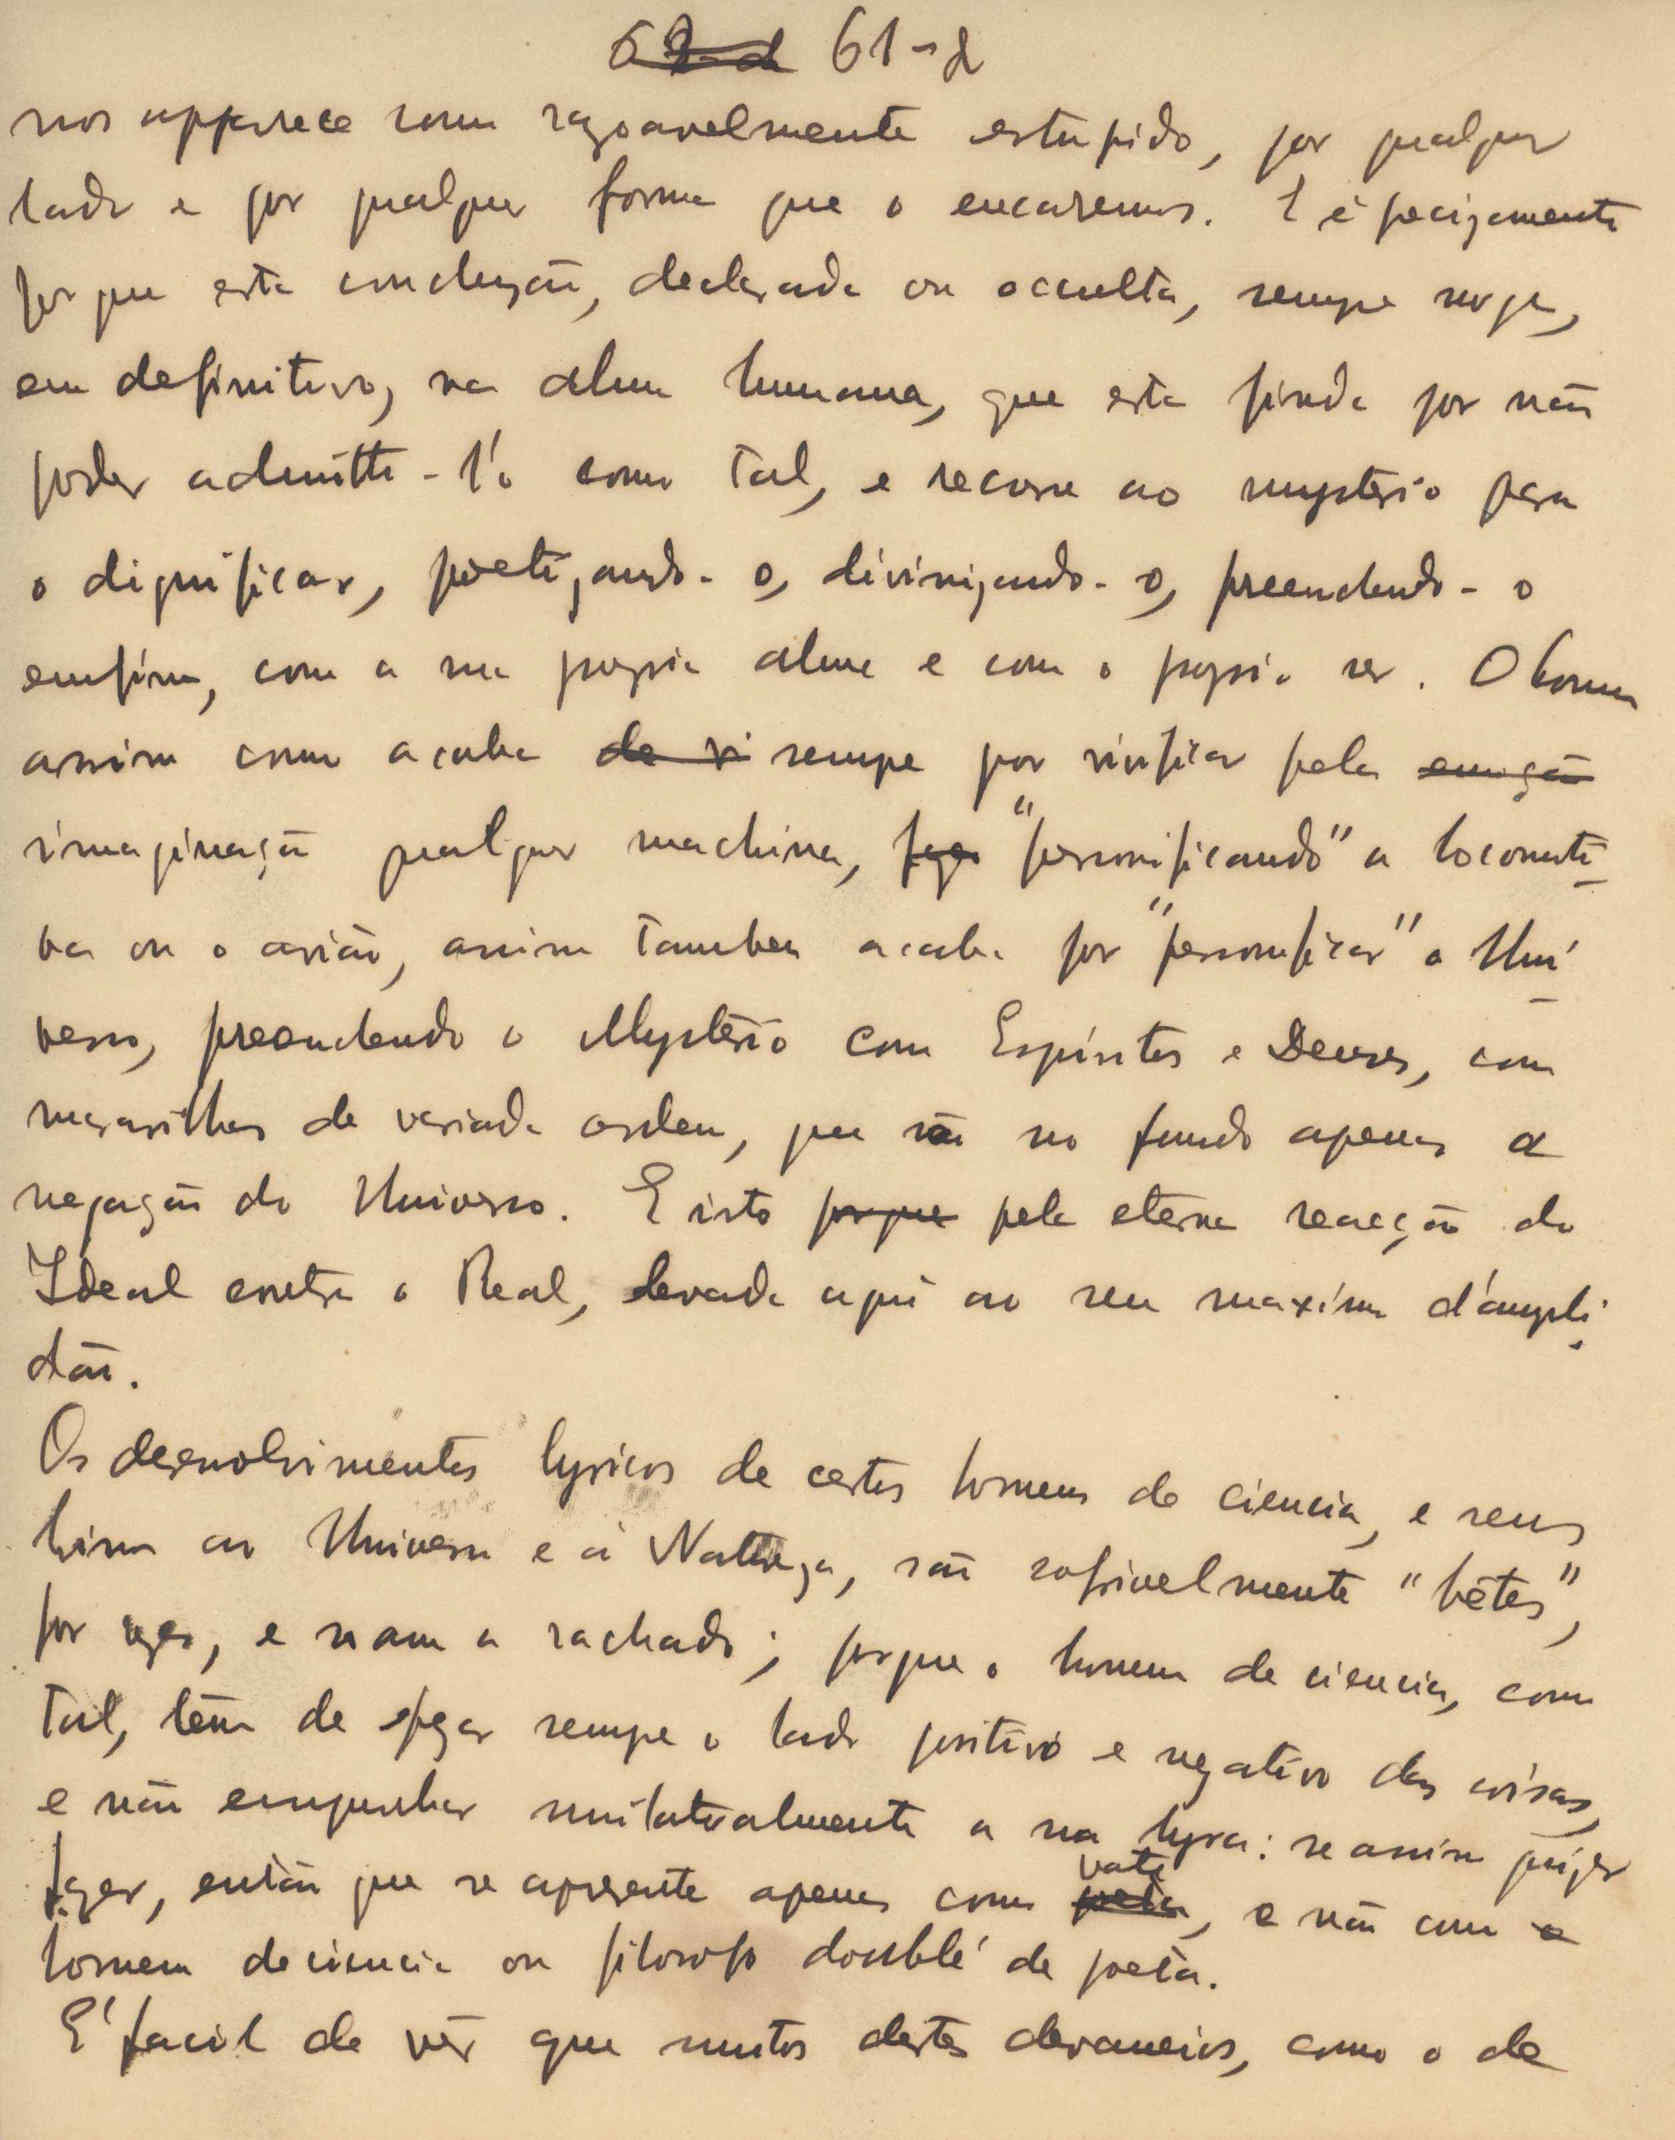 61-d
nos apparece como razoavelmente estupido, por qualquer
lado e por qualquer forma que o encaremos. E é precizamente
por que esta concluzão, declarada ou occulta, sempre surge,
em definitivo, na alma humana, que esta finda por não
poder admitti-l'o como tal, e recorre ao mysterio para
o dignificar, poetizando-o, divinizando-o, preenchendo-o
emfim, com a sua propria alma e com o proprio ser. O homem
assim como acaba de vi sempre por vivificar pela emoção
imaginação qualquer machina, "personificando" a locomoti-
va ou o avião, assim tambem acaba por "personificar" o Uni-
verso, preenchendo o Mysterio com Espiritos e Deuses, com
maravilhas de variada ordem, que são no fundo apenas a
negação do Universo. E isto porque pela eterna reacção do
Ideal contra o Real, levada aqui ao seu maximo d'ampli-
dão.
Os desenvolvimentos lyricos de certos homens de ciencia, e seus
hinos ao Universo e á Natureza, são sofrivelmente "bêtes",
por vezes, e soam a rachado; porque o homem de ciencia, como
tal, têm de sempre o lado positivo e negativo das coisas,
e não empunhar unilateralmente a sua lyra: se assim quizer
fazer, então que se aprezente apenas como poeta vate, e não como o
homem de ciencia ou filosofo doublé de poeta.
E' facil de vêr que muitos destes devaneios, como o de